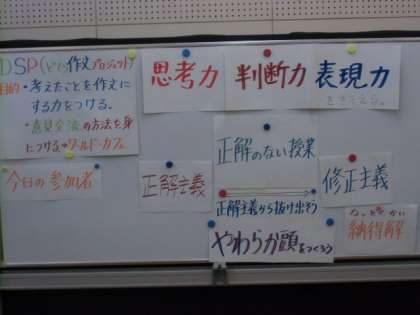 DSP(どじ作文プロジェクト)
目的・考えたことを作文に
する力をつける。
・意見交流の方法を身
につける⇒ワールド・カフェ
思考力
判断力
表現力
をきたえる。
正解のない授業
今日の参加者
正解主義
修正主義
正解主義から抜け出そう
やわらか頭をつくろう
なっとくかい
納得解